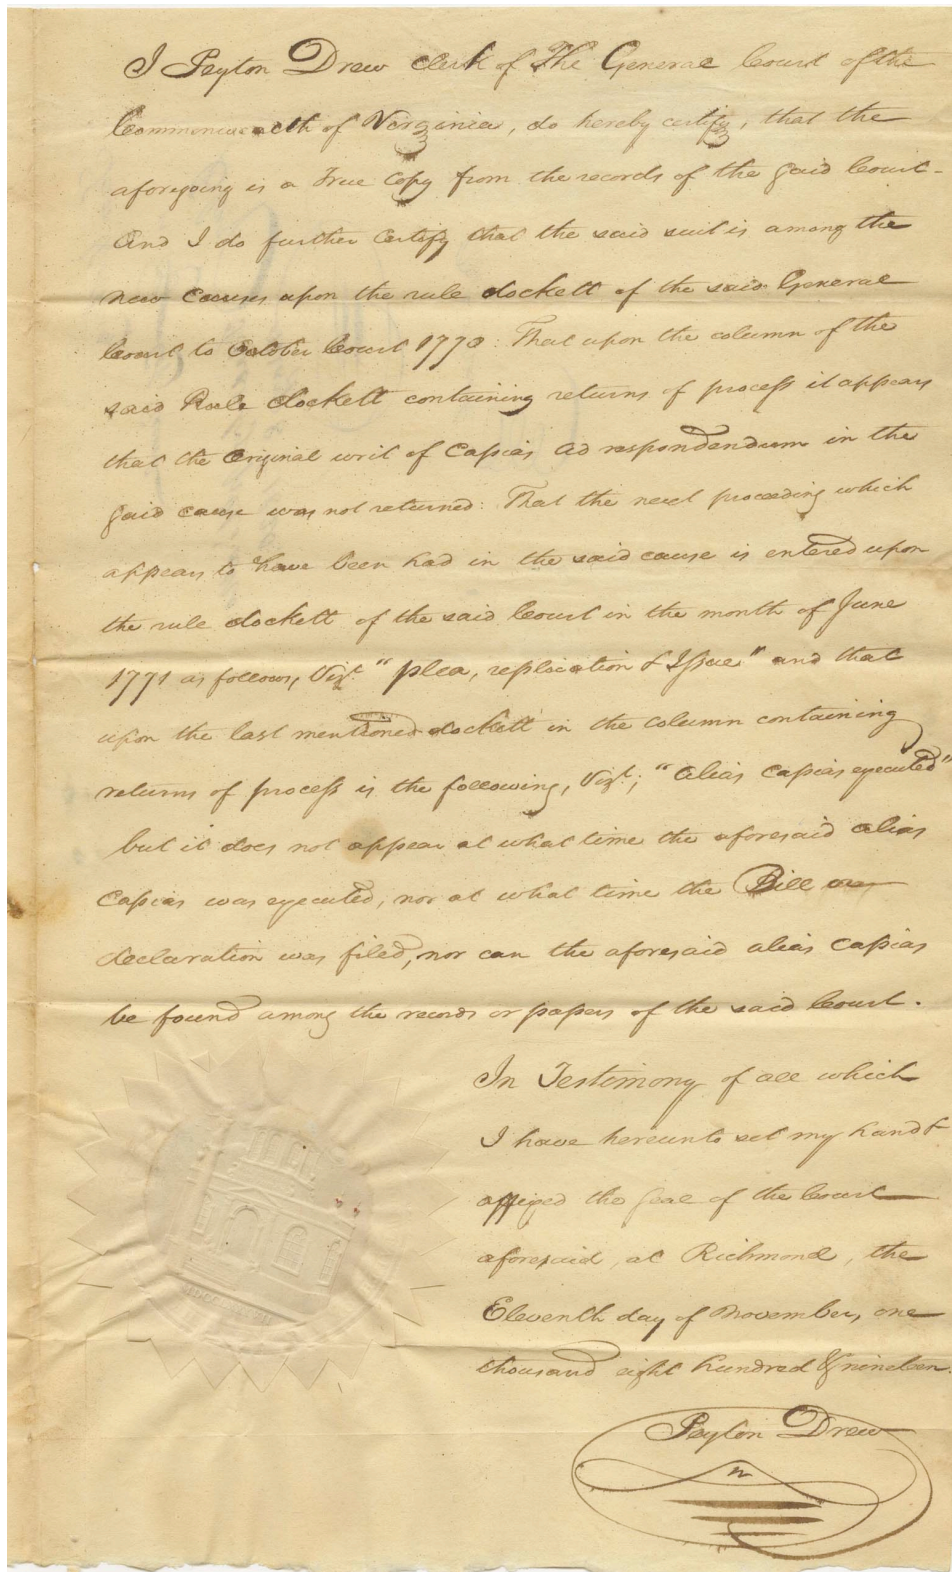 I Peyton Drew Clerk of The General Court of the
Commonwealth of Virginia, do hereby certify, that the
aforegoing is a True Copy from the records of the said Court -
And I do further Certify that the said suit is among the
new Causes upon the rule dockett of the said General
Court to October Court 1770: That upon the column of the
said Rule dockett containing returns of process it appears
that the Original writ of Capias ad respondendum in the
said cause was not returned: That the next proceeding which
appears to have been had in the said cause is entered upon
the rule dockett of the said Court in the month of June
1771 as follows, Vizt. "plea, replication & Issue" and that
upon the last mentioned dockett in the column containing
returns of process is the following, Vizt; "Alias Capias executed"
but it does not appear at what time the aforesaid alias
Capias was executed, nor at what time the Bill or
declaration was filed, nor can the aforesaid alias Capias
be found among the records or papers of the said Court.
In Testimony of all which
I have hereunto set my hand &
affixed the seal of the Court
aforesaid, at Richmond, the
Eleventh day of November, one
thousand eight hundred & nineteen.
Peyton Drew